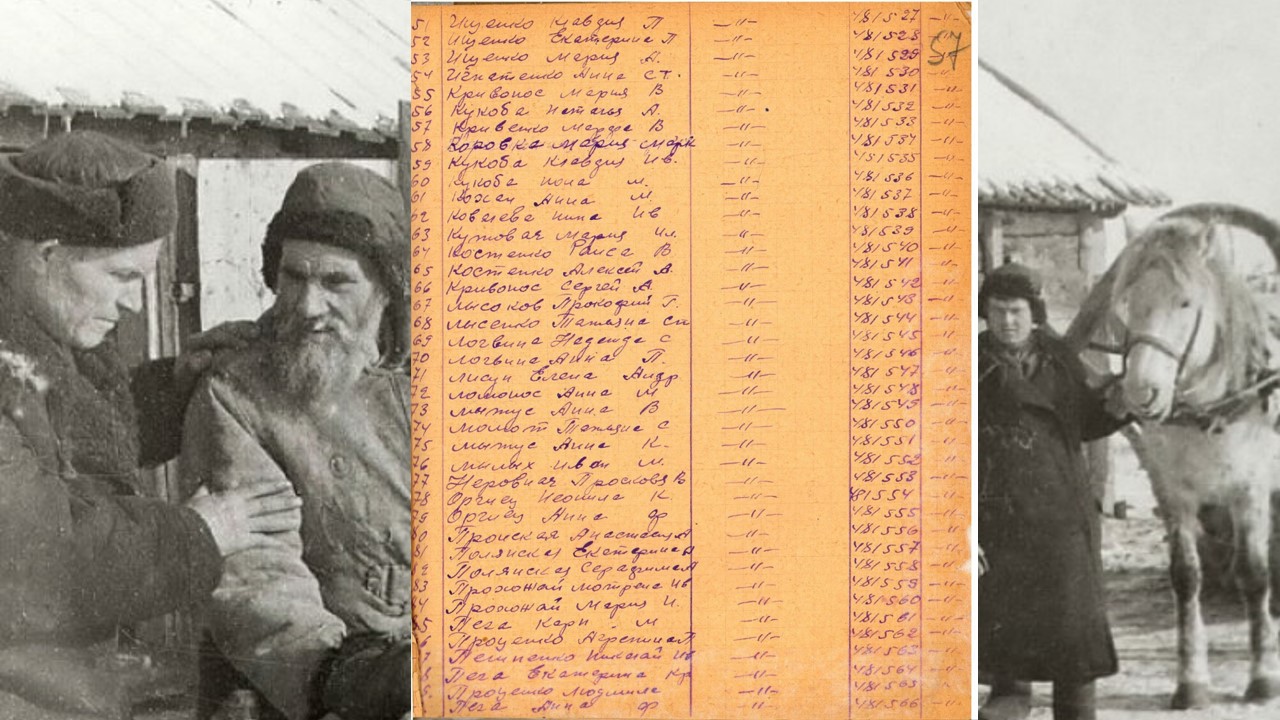 51 Ищенко Клавдия П —"— 481527 —"—
52 Ищенко Екатерина П —"— 481528 —"—
57
53 Ищенко Мария А. —"— 481529
54 Игнатенко Анна Ст. —"— 481530 —"—
55 Кривонос Мария В —"— 481531 —"—
56 Кукоба Наталья А. —"— 481532 —"—
57 Кривенко Марфа В —"— 481533 —"—
58 Коровка Мария Марк —"— 481534 —"—
59 Кукоба Клавдия Ив. —"— 481535 —"—
60 Кукоба м. —"— 481536 —"—
61 Анна М —"— 481537 —"—
62 Нина Ив —"— 481538 —"—
63 Кутовая Мария Ил. —"— 481539 —"—
64 Костенко Раиса В —"— 481540 —"—
65 Костенко Алексей А. —"— 481541 —"—
66 Кривонос Сергей А —"— 481542 —"—
67 Лысоков Прокофий Г. —"— 481543 —"—
68 Лысенко Татьяна Сп —"— 481544 —"—
69 Логвина Надежда С —"— 481545 —"—
70 Логвина Анна П. —"— 481546 —"—
71 Лисун Елена Андр —"— 481547 —"—
72 Ломонос Анна М —"— 481548 —"—
73 Мыжус Анна В —"— 481549 —"—
74 Молот Татьяна С —"— 481550 —"—
75 Мыжус Анна К. —"— 481551 —"—
76 Милых Иван М. —"— 481552 —"—
77 Неровная Просковя В —"— 481553 —"—
78 Оргиец К. —"— 481554 —"—
79 Оргиец Анна Ф —"— 481555 —"—
80 Анастасия А —"— 481556 —"—
81 Полянская Екатерина А —"— 481557 —"—
82 Полянская Серафима А —"— 481558 —"—
83 Прохожай Мотрена Ив —"— 481559 —"—
84 Прохожай Мария И. —"— 481560 —"—
85 Пега Карп. М —"— 481561 —"—
86 Проценко П —"— 481562 —"—
87 Николай Ив —"— 481563 —"—
8 Пега Екатерина Кр —"— 481564 —"—
Проценко Людмила —"— 481565 —"—
Пега Анна Ф —"— 481566 —"—